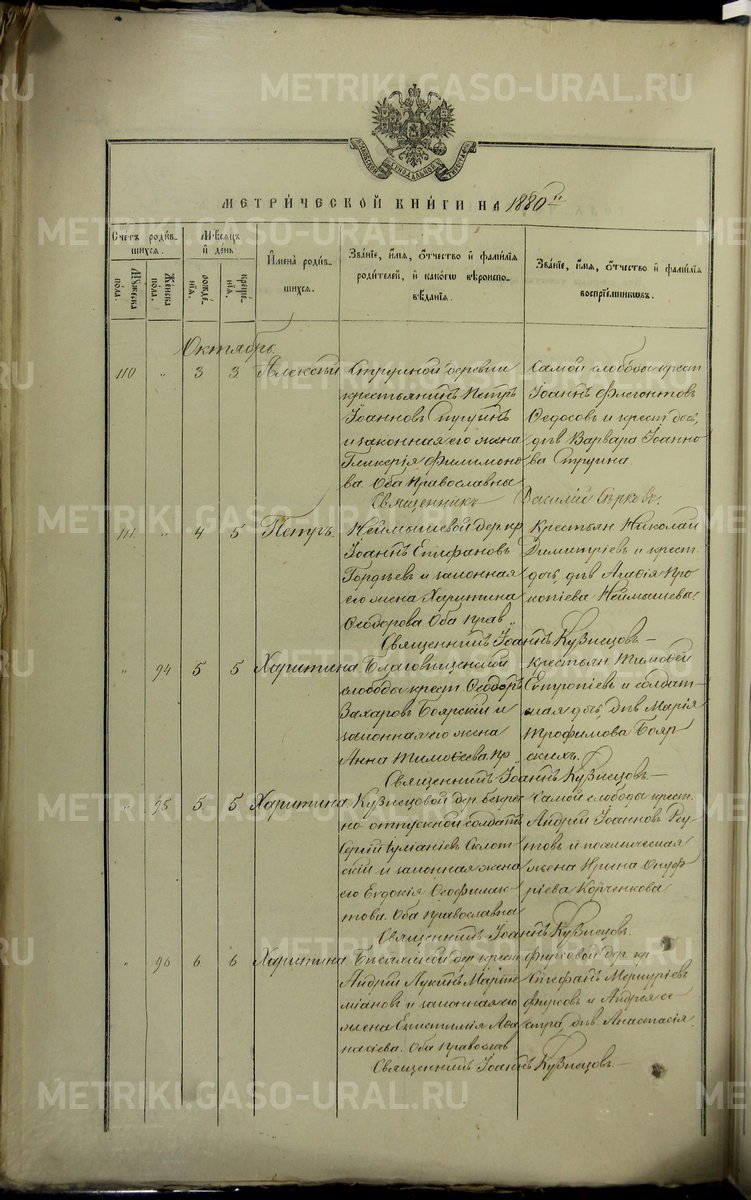 METRIKI.GASO-URAL.RU
МОСКОВСКОЙ СѴНОДАЛЬНОЙ ТИПОГРАФІИ
МЕТРИ́ЧЕСКОЙ КНИ́ГИ НА 1880 й
Счетъ роди́вшихся.
Мѣсяцъ и день
Имена̀ роди́вшихся.
Зва́ніе, и́мя, о́тчество и фами́лія роди́телей, и како́гѡ вѣроисповѣ́данія.
Зва́ніе, и́мя, о́тчество и фами́лія воспріе́мникѡвъ.
Мужеска пола.
Женска пола.
рожденія.
крещенія.
Октябрь.
110 " 3 3 Алексѣй
деревни
крестьянинъ Петръ
Іоанновъ
и законная его жена
Гликерія Филимоно
ва Оба Православны
Самой слободы крест
Іоаннъ Флегонтов
Ѳедосовъ и крест дочь,
дѣв Варвара Іоанно
ва
Священникъ Василій
111 " 4 5 Петръ.
Неймышевой дер кр
Іоаннъ Епифановъ
Гордѣевъ и законная
его жена Харитина
Ѳеодорова Оба прав
Крестьян Николай
Димитріевъ и крест.
дочь, дѣв Агафія Про
копіева Неймышева
Священникъ Іоаннъ Кузнецовъ.
" 94 5 5 Харитина
Благовѣщенской
слободы крест. Ѳеодоръ
Захаровъ Боярскій и
законная его жена
Анна Тимоѳеева пр
Крестьян Тимофей
Евтропіевъ и солдат
ская дочь, дѣв Марія
Трофимова Бояр
скихъ.
Священникъ Іоаннъ Кузнецовъ.
" 95 5 5 Харитина
Кузнецовой дер. безсро
но отпускной солдатъ
и законная жена
его Евдокія Ѳеофилак
това. Оба православны
Самой слободы крест.
Андрей Іоанновъ Реу
товъ и
жена Ирина Онуф
ріева Корченкова
Священникъ Іоаннъ Кузнецовъ.
" 96 6 6 Харитина
дер. крест
Андрей Лукинъ Марте
міановъ и законная его
жена Епистимія Аѳа
насіева. Оба православ
Фирсовой дер. кр
Стефанъ Меркуріевъ
Фирсовъ и Андрея се
стра, дѣв. Анастасія.
Священникъ Іоаннъ Кузнецовъ.